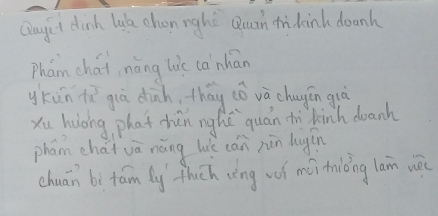 Quyết định lựa chọn nghề Quản trị kinh doanh
Phẩm chất, năng lực cá nhân
ý kiến từ gia đình, thầy cô và chuyên gia
xu hướng phát triển nghề quản trị kinh doanh
phẩm chất và năng lực cần rèn luyện
chuẩn bị tâm lý thích ứng với môi trường làm việc